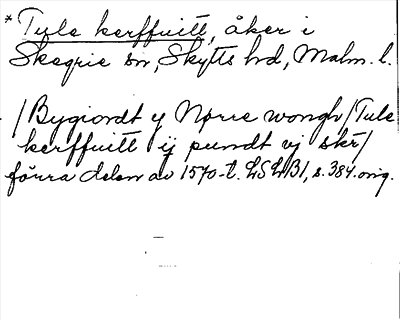 * Tule kerffuitt, åker i
Skegrie sn, Skytts hd, Malm. l.
/Bygiordt y Nørre wongh/Tule
kerffuitt ij pundt vj skr/
förra delen av 1570-t. LSLB1, s. 384. orig.